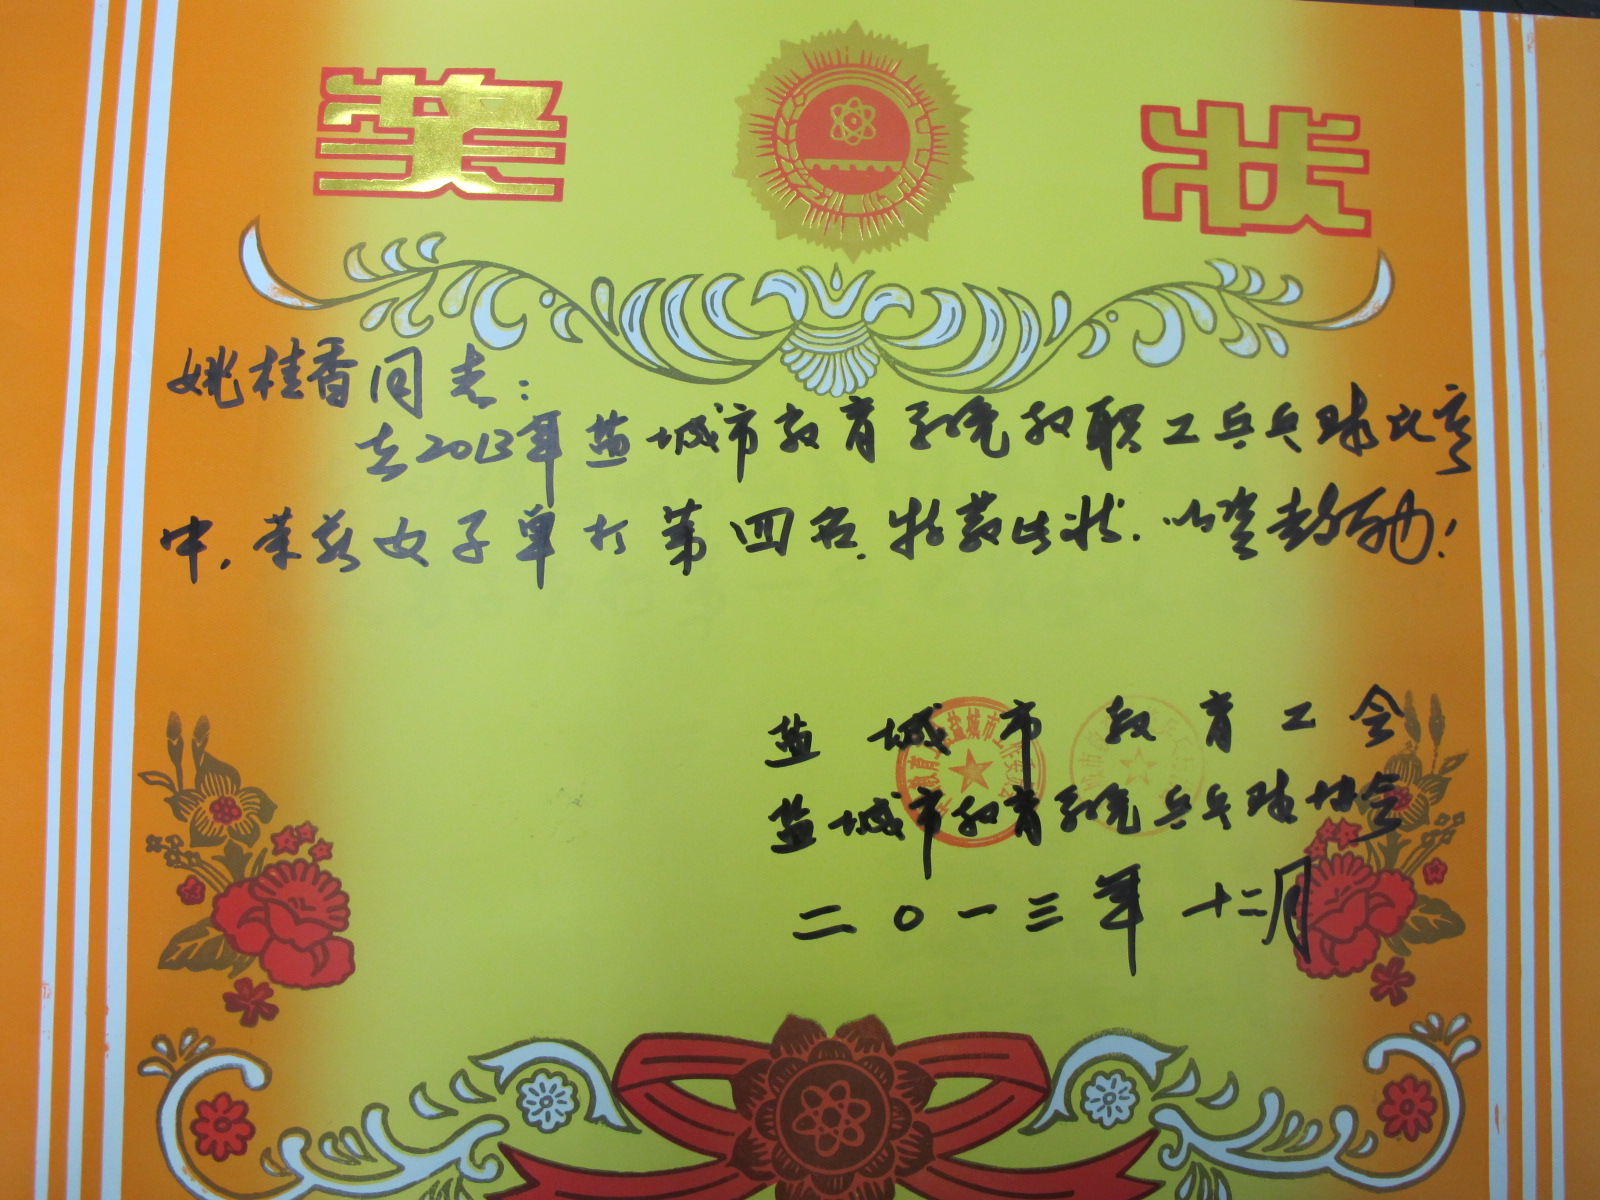 奖状
姚桂香同志:
在2013年盐城市教育系统教职工乒乓球比赛
中,荣获女子单打第四名,特发此状,以资鼓励!
盐城市教育工会
盐城市教育系统乒乓球协会
二〇一三年十二月